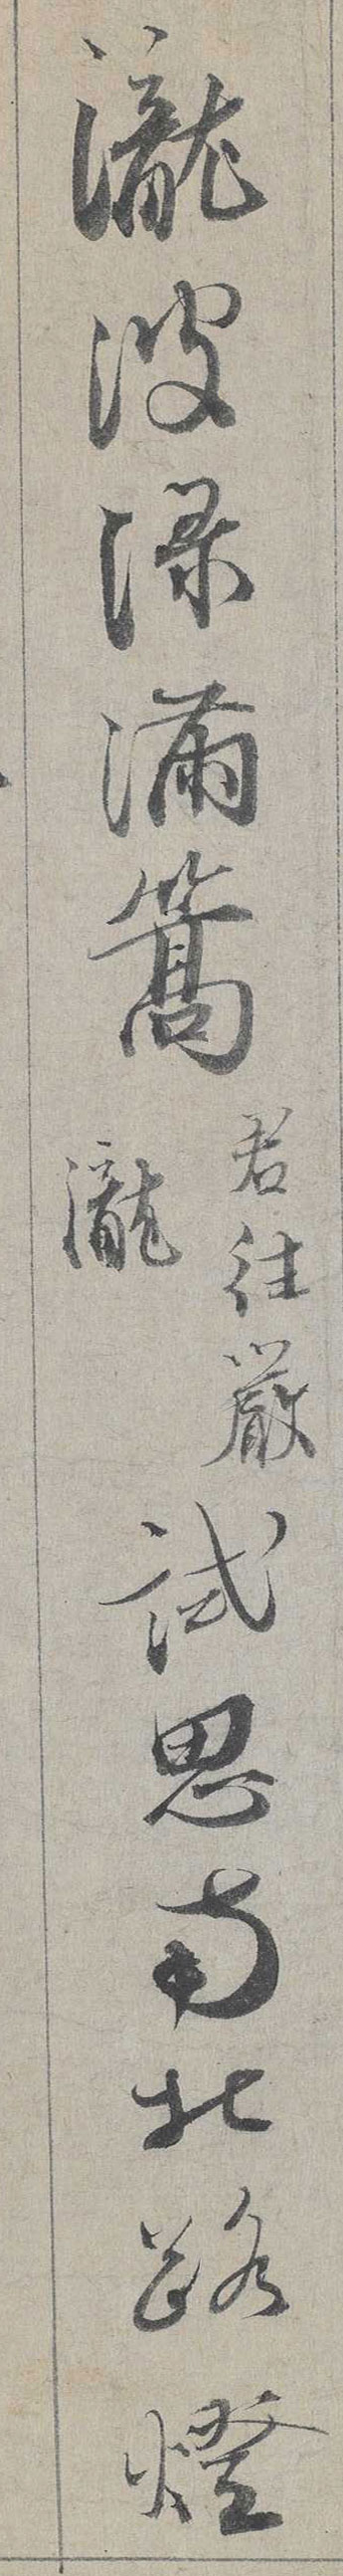 瀧波渌滿篙
君往嚴
瀧
試思南北路燈